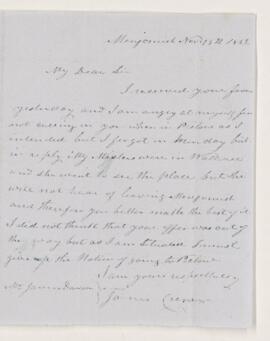 My Dear Sir
I received your favor
yesterday and I am angry at myself for
not seeing you when in Pictou as I
intended but I forgot
in reply. My was in Wallace
and she went to see the place but she
will not hear of leaving
and therefore you better make the best of it
I did not think that your offer was out of
the way but as I am situated I must
give up the Notion of going to Pictou
I am yours respectfully
Mr James Dawson James